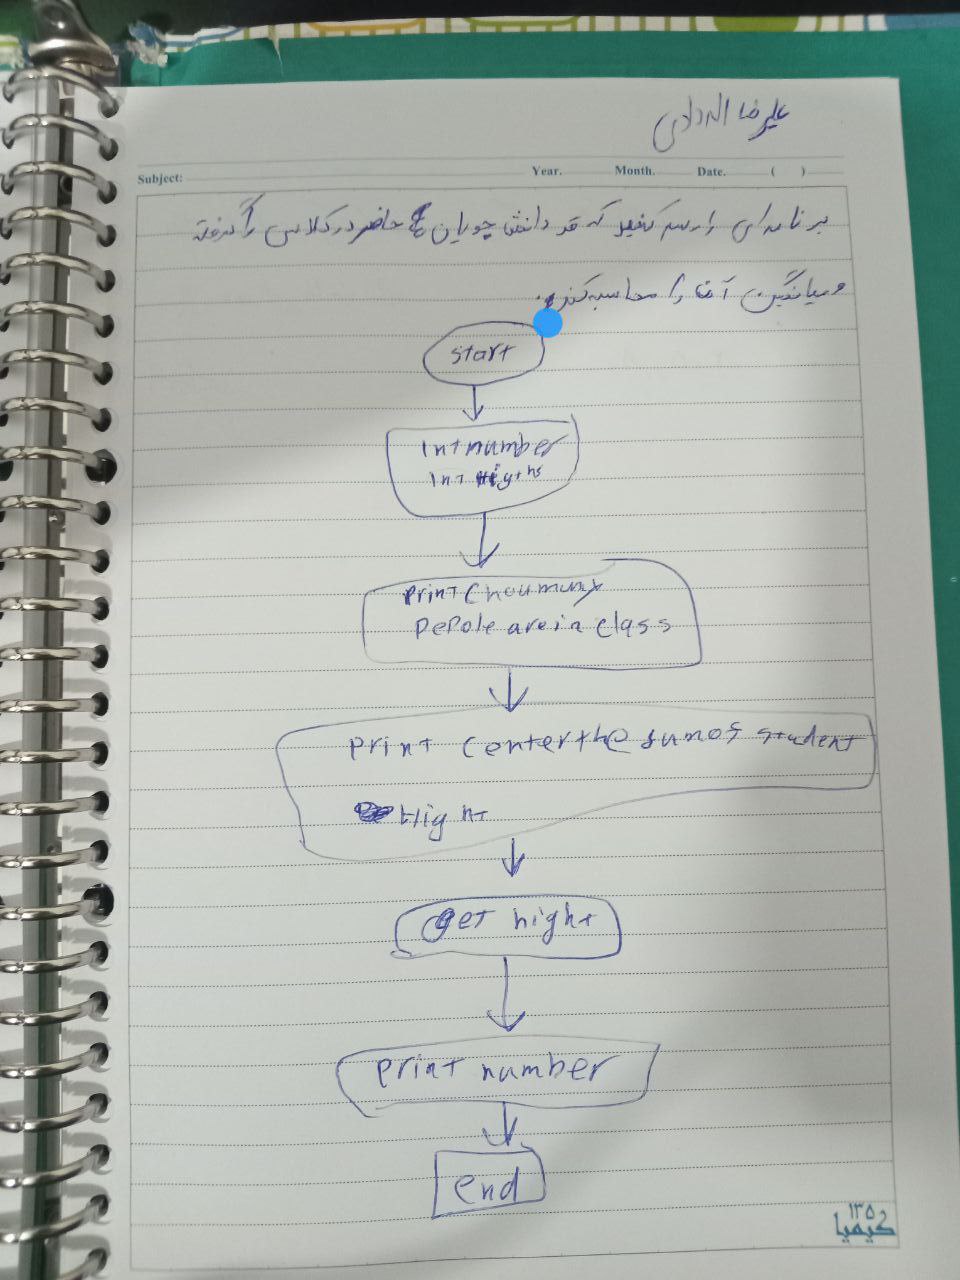 علیرضا
Subject:
Year. Month. Date. ( )
برنامه‌ای را رسم کنید که قد دانشجویان حاضر در کلاس را گرفته
و میانگین آنها را محاسبه کند.
start
int number
int Higths
print (houmany
pepole are in class
print (enter the sum of student
Hight
get hight
print number
end
۱۳۵۰
کیمیا